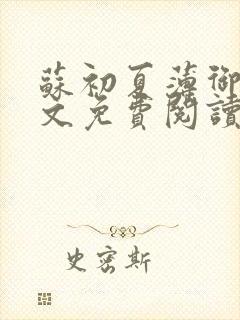 蘇初夏薄御
文免費閱讀
史密斯